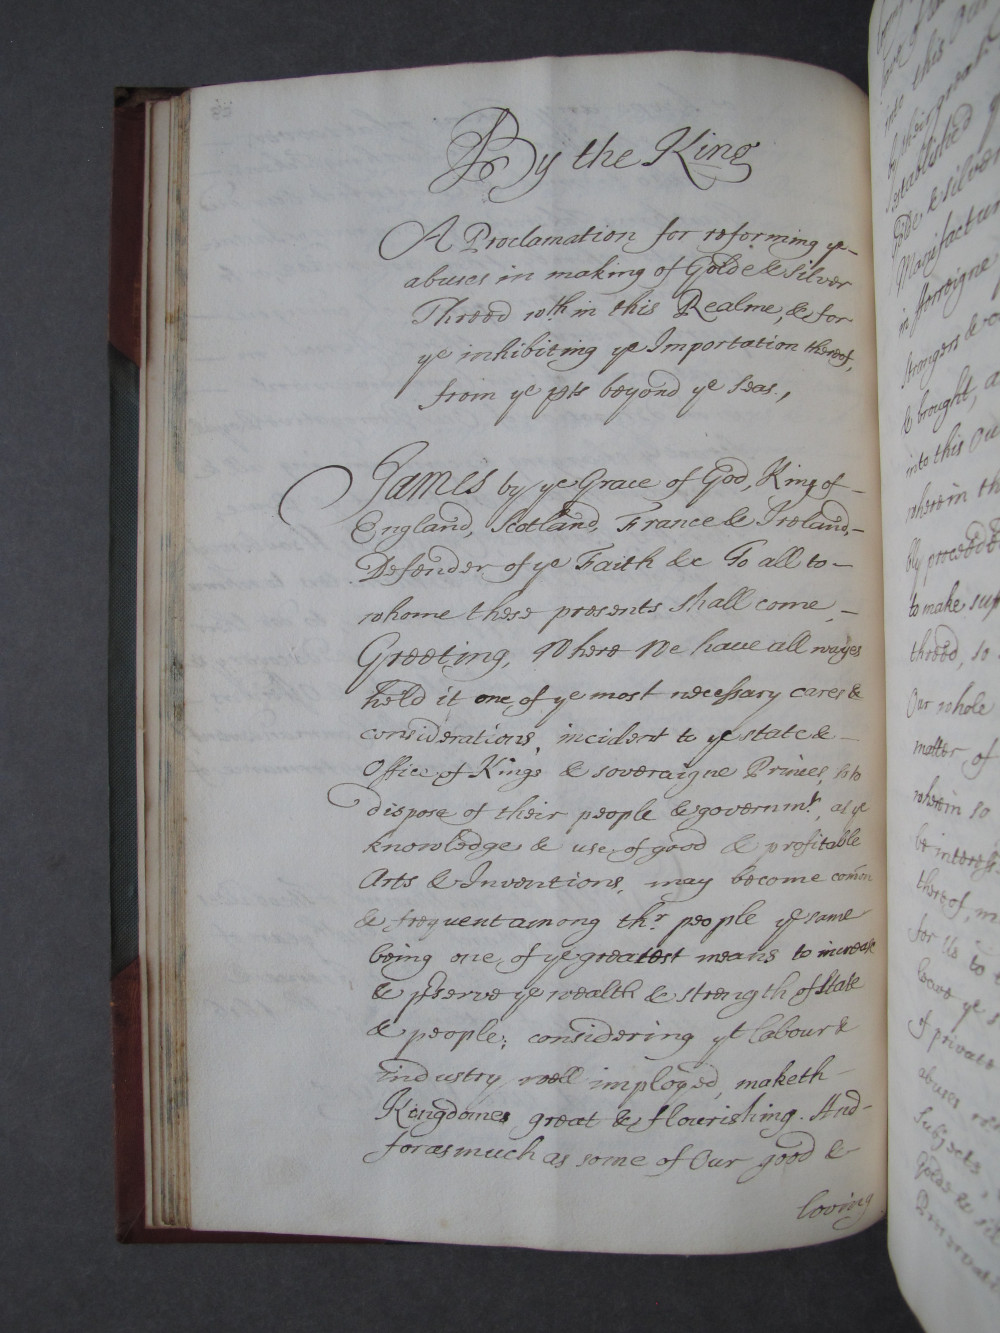 By the King
A Proclamation for reforming ye
abuses in making of Golde & Silver
Threed wth in this Realme, & for
ye inhibiting ye Importation thereof,
from ye pts beyond ye Seas.,
James by ye Grace of God, King of
England, Scotland, France & Ireland,
Defender of ye Faith &c To all to
whome these presents shall come,
Greeting, Where We have all wayes
held it one, of ye most necessary cares &
considerations, incident to ye state &
Office of Kings & soveraigne Princes, so to
dispose of their people & governmt, as ye
knowledge & use, of good & profitable
Arts & Inventions, may become comon
& frequent among thr people ye same
being one, of ye greatest means to increase
& pserve ye wealth & strength of State
& people; considering yt labour &
industry well imployed, maketh
Kingdomes great & flourishing. And
forasmuch as some of Our good &
loving
into this Our
by their great
established
Golde & silver
Manifacture
in fforreigne
strangers &
& brought,
into this Our
wherein
bly proceede
to make
threed, so
Our whole
matter of
wherein so
be
thereof,
for Us to
leave ye
of private
abuses
Subjects,
Golde &